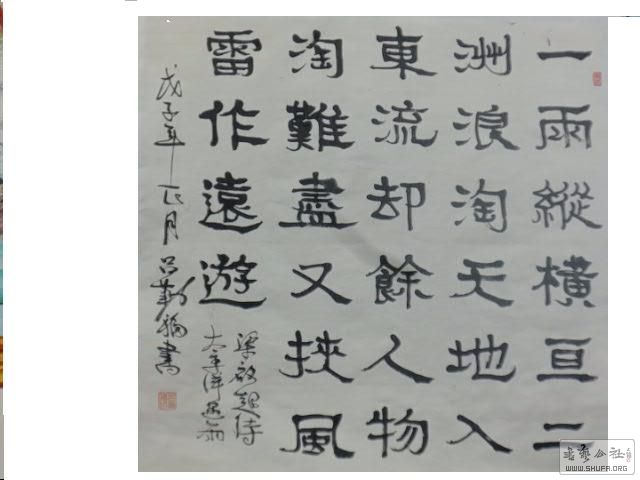 一雨縱橫亘二
洲浪淘天地入
東流却餘人物
淘難盡又挾風
雷作遠遊
梁啟超诗
太平洋遇雨
戊子年正月吕勤福書
書法公社
WWW.SHUFA.ORG